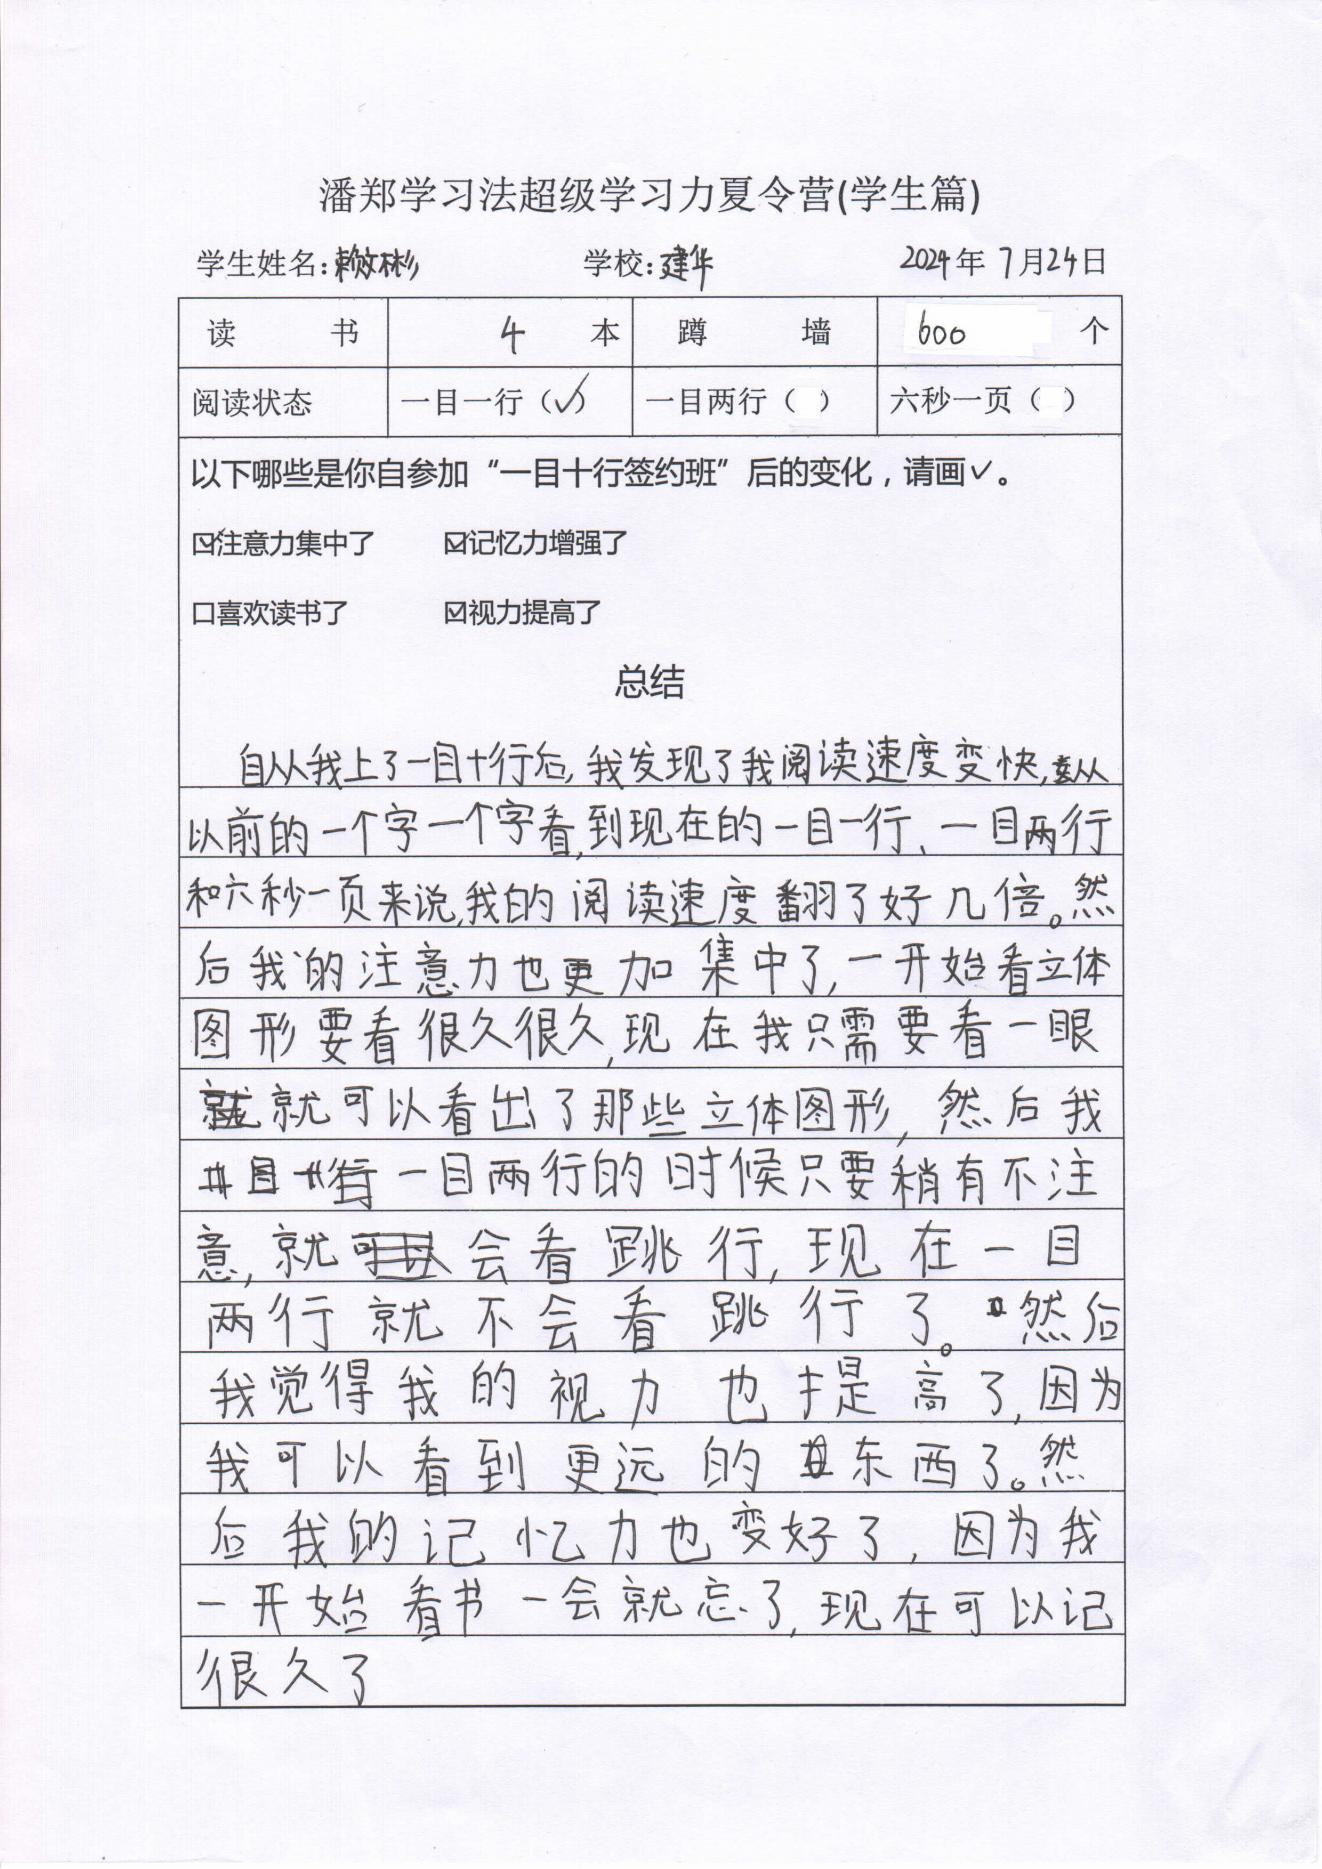 潘郑学习法超级学习力夏令营(学生篇)
学生姓名:赖文彬 学校:建华 2024年7月24日
读书 4本 蹲墙 600个
阅读状态 一目一行（✓） 一目两行（ ） 六秒一页（ ）
以下哪些是你自参加“一目十行签约班”后的变化，请画✓。
☑注意力集中了 ☑记忆力增强了
口喜欢读书了 ☑视力提高了
总结
自从我上了一目十行后,我发现了我阅读速度变快,从
以前的一个字一个字看,到现在的一目一行、一目两行
和六秒一页来说,我的阅读速度翻了好几倍。然
后我的注意力也更加集中了,一开始看立体
图形要看很久很久,现在我只需要看一眼
就可以看出了那些立体图形,然后我
一目两行的时候只要稍有不注
意,就会看跳行,现在一目
两行就不会看跳行了。然后
我觉得我的视力也提高了,因为
我可以看到更远的东西了。然
后我的记忆力也变好了,因为我
一开始看书一会就忘了,现在可以记
很久了